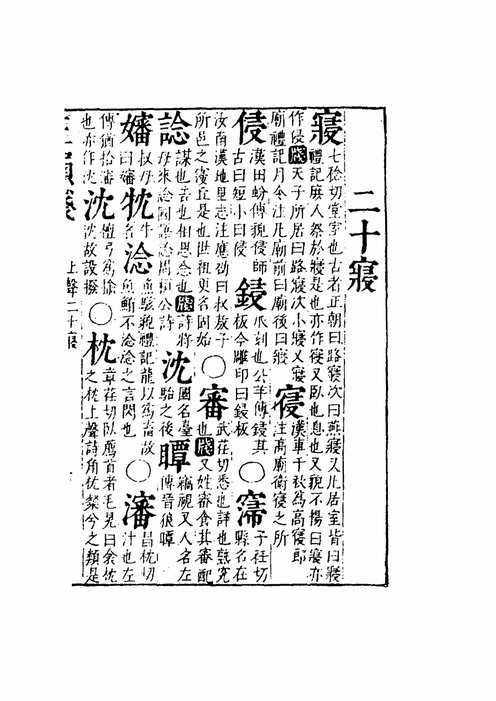 二十寑
寑七稔切堂室也古者正朝曰路寢次曰燕寢又凡居室皆曰寢
禮記庶人祭於寢是也亦作寑又臥也息也又貌不揚曰寢亦
作侵牋天子所居曰路寢次小寢又寢
廟禮記月令注凡廟前曰廟後曰寢
寑漢車千秋為高寢郎
注高廟衛寢之所
侵漢田蚡傳貌侵師
古曰短小曰侵
鋟爪刻也公羊傳鋟其
板今雕印曰鋟板
○子袵切
縣名在
汝南漢地里志注應劭曰叔敖子
所邑之寑丘是也世祖更名固始
○審武荏切悉也詳也熟究
也牋又姓審食其審配
諗謀也告也相思念也牋詩將
母來諗國語諗周桓公詩
沈國名臺
駘之後
瞫竊視又人名左
傳晉狼瞫
嬸叔母
曰嬸
牛
名
淰魚駭貌禮記龍以為畜故
魚鮪不淰淰之言閃也
○瀋昌枕切
汁也左
傳猶拾瀋
也亦作沈
沈檀弓為榆
沈故設撥
○枕章荏切臥薦首者毛晃曰衾枕
之枕上聲詩角枕粲兮之類是
上聲二十寑